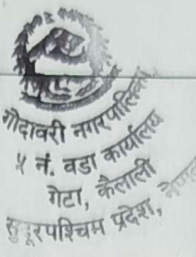 गोदावरी नगरपालिका
५ नं. वडा कार्यालय
गेटा, कैलाली
सुदूरपश्चिम प्रदेश, नेपाल